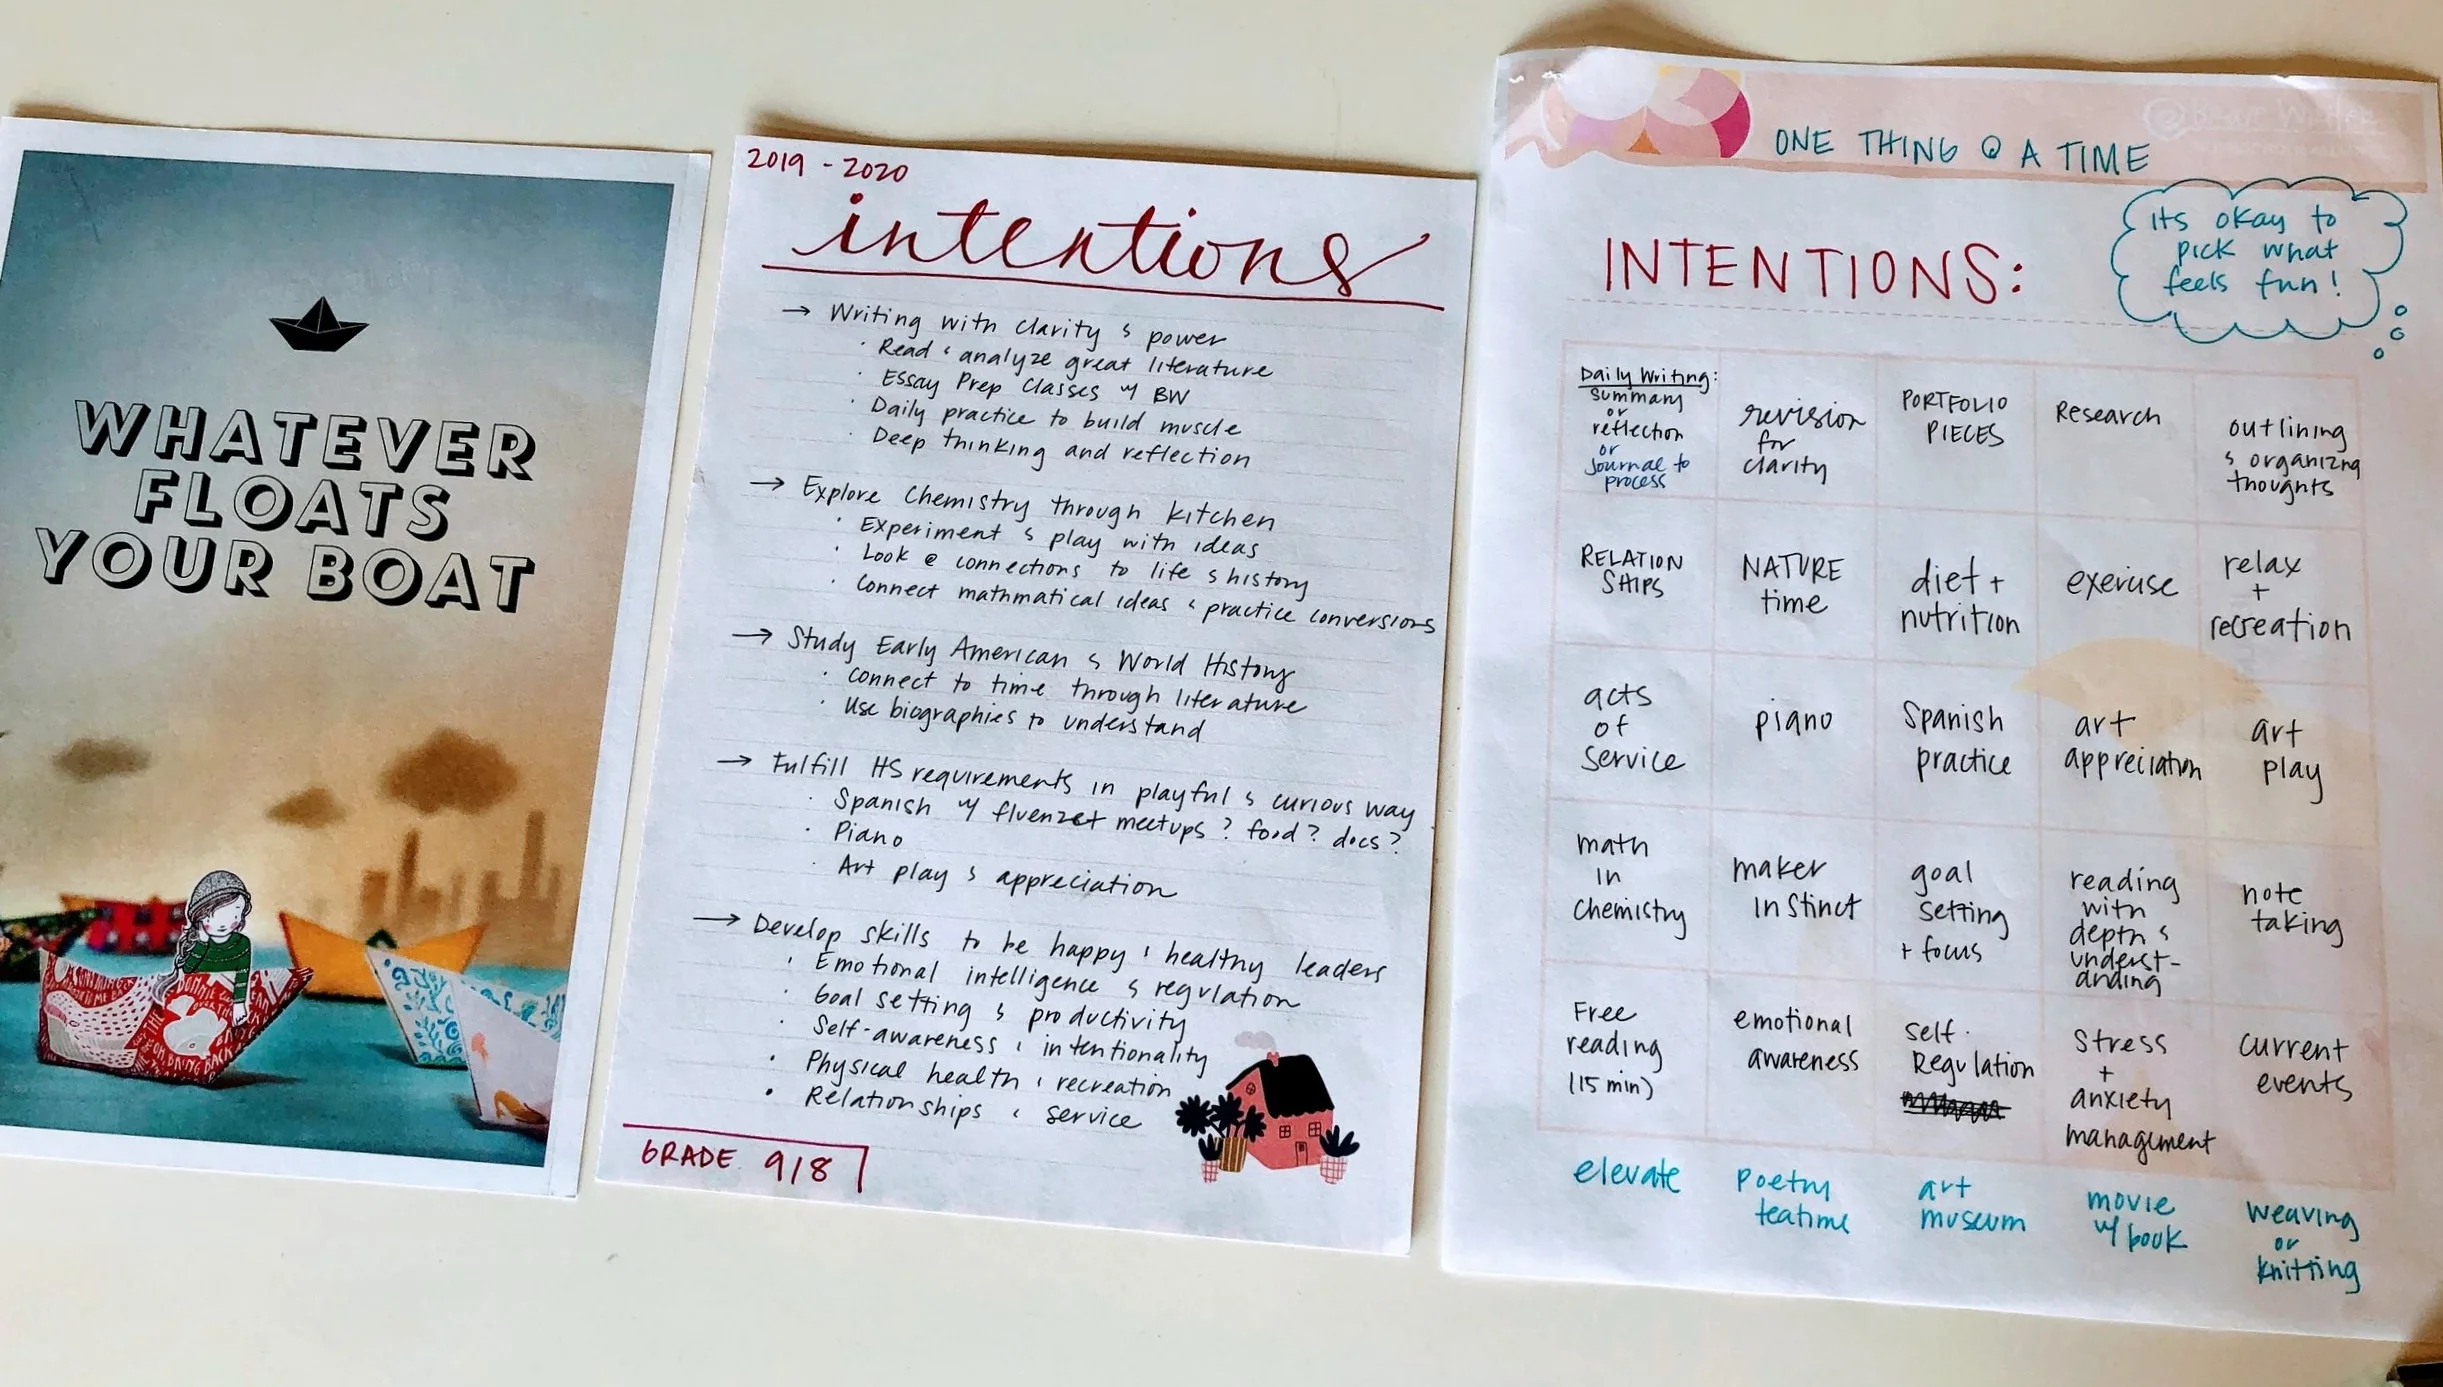 WHATEVER
FLOATS
YOUR BOAT
2019 - 2020
intentions
→ Writing with clarity & power
· Read & analyze great literature
· Essay Prep Classes w/ BW
· Daily practice to build muscle
· Deep thinking and reflection
→ Explore Chemistry through kitchen
· Experiment & play with ideas
· Look @ connections to life & history
· Connect mathmatical ideas & practice conversions
→ Study Early American & World History
· Connect to time through literature
· Use biographies to understand
→ Fulfill HS requirements in playful & curious way
· Spanish w/ fluenzet meetups? food? docs?
· Piano
· Art play & appreciation
→ Develop skills to be happy & healthy leaders
· Emotional intelligence & regulation
· Goal setting & productivity
· Self-awareness & intentionality
· Physical health & recreation
· Relationships & service
GRADE 9/8
ONE THING @ A TIME
its okay to
pick what
feels fun!
INTENTIONS:
Daily Writing:
Summary
or
reflection
or
Journal to
process
revision
for
clarity
PORTFOLIO
PIECES
Research
outlining
& organizng
thoughts
RELATION
SHIPS
NATURE
time
diet +
nutrition
exercise
relax
+
recreation
acts
of
service
piano
Spanish
practice
art
appreciation
art
play
math
in
chemistry
maker
instinct
goal
setting
+ focus
reading
with
depth &
underst-
anding
note
taking
Free
reading
(15 min)
emotional
awareness
self-
Regulation
Stress
+
anxiety
management
current
events
elevate
Poetry
teatime
art
museum
movie
w/ book
weaving
or
knitting